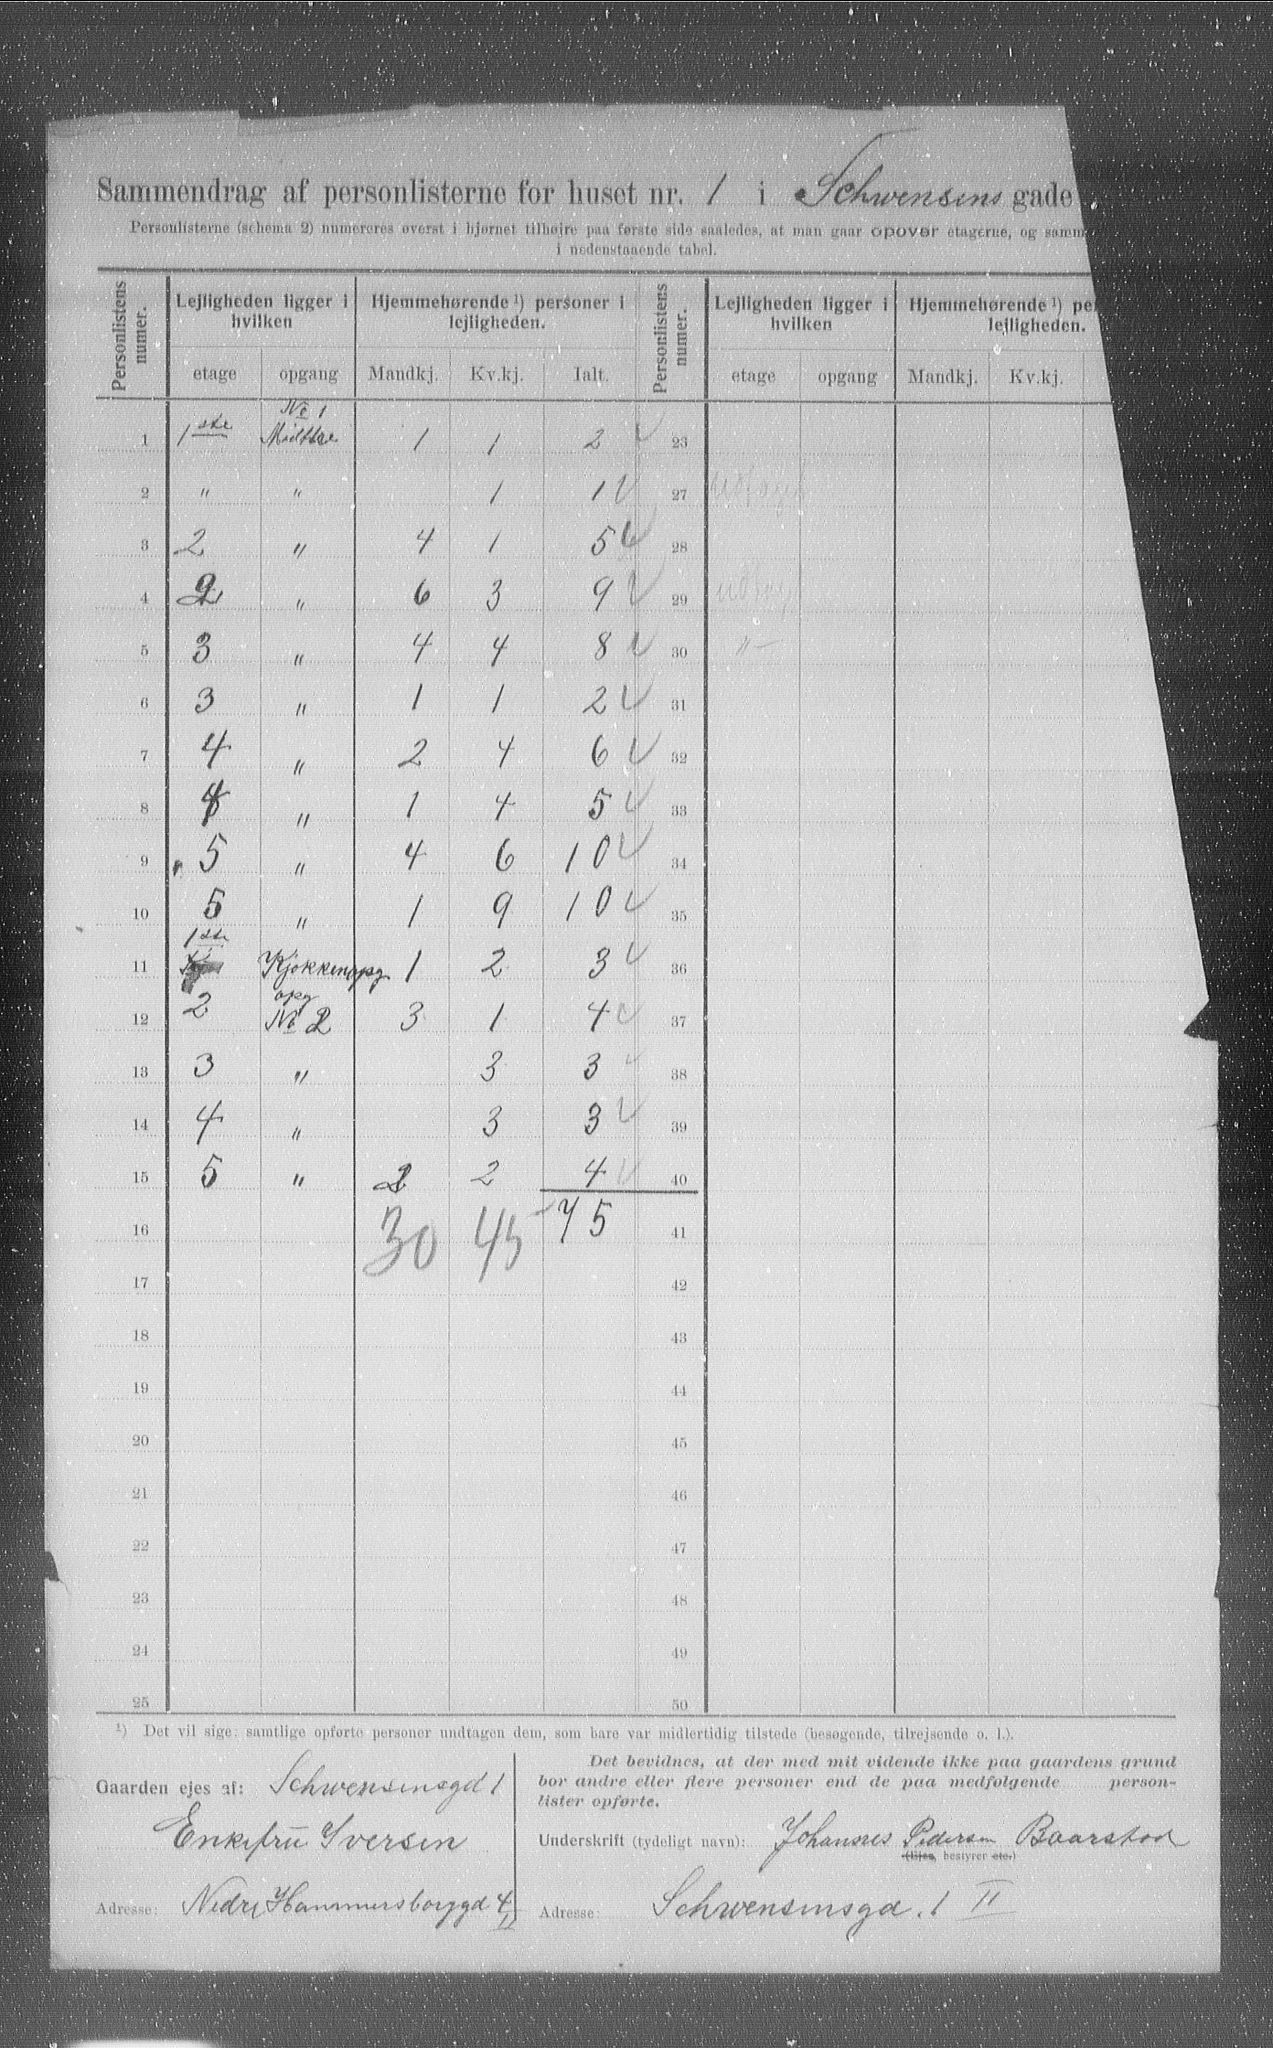 Sammendrag af personlisterne for huset nr. 1 i Schwensens gade
Personlisterne (schema 2) numereres øverst i hjørnet tilhøjre paa første side saaledes, at man gaar opover etagerne, og samm
i nedenstaaende tabel.
Personlistens numer. Lejligheden ligger i hvilken Hjemmehørende ¹) personer i lejligheden. Personlistens numer. Lejligheden ligger i hvilken Hjemmehørende ¹) pe lejligheden.
etage opgang Mandkj. Kv.kj. Ialt. etage opgang Mandkj. Kv.kj.
No 1
1 1ste Midtre 1 1 2 23
2 " " 1 1 27
3 2 " 4 1 5 28
4 2 " 6 3 9 29
5 3 " 4 4 8 30 "-
6 3 " 1 1 2 31
7 4 " 2 4 6 32
8 4 " 1 4 5 33
9 5 " 4 6 10 34
10 5 " 1 9 10 35
11 1ste Kjøkkenopg. 1 2 3 36
opg
12 2 No 2 3 1 4 37
13 3 " 3 3 38
14 4 " 3 3 39
15 5 " 2 2 4 40
16 30 45 75 41
17 42
18 43
19 44
20 45
21 46
22 47
23 48
24 49
25 50
¹) Det vil sige: samtlige opførte personer undtagen dem, som bare var midlertidig tilstede (besøgende, tilrejsende o. l.).
Gaarden ejes af: Schwensensgd 1
Enkefru Iversen
Adresse: Nedre Hammersborggd 4
Det bevidnes, at der med mit vidende ikke paa gaardens grund
bor andre eller flere personer end de paa medfølgende person-
lister opførte.
Underskrift (tydeligt navn): Johannes Pedersen Baarstad
(Ejer, bestyrer etc.)
Adresse: Schwensensgd. 1 II